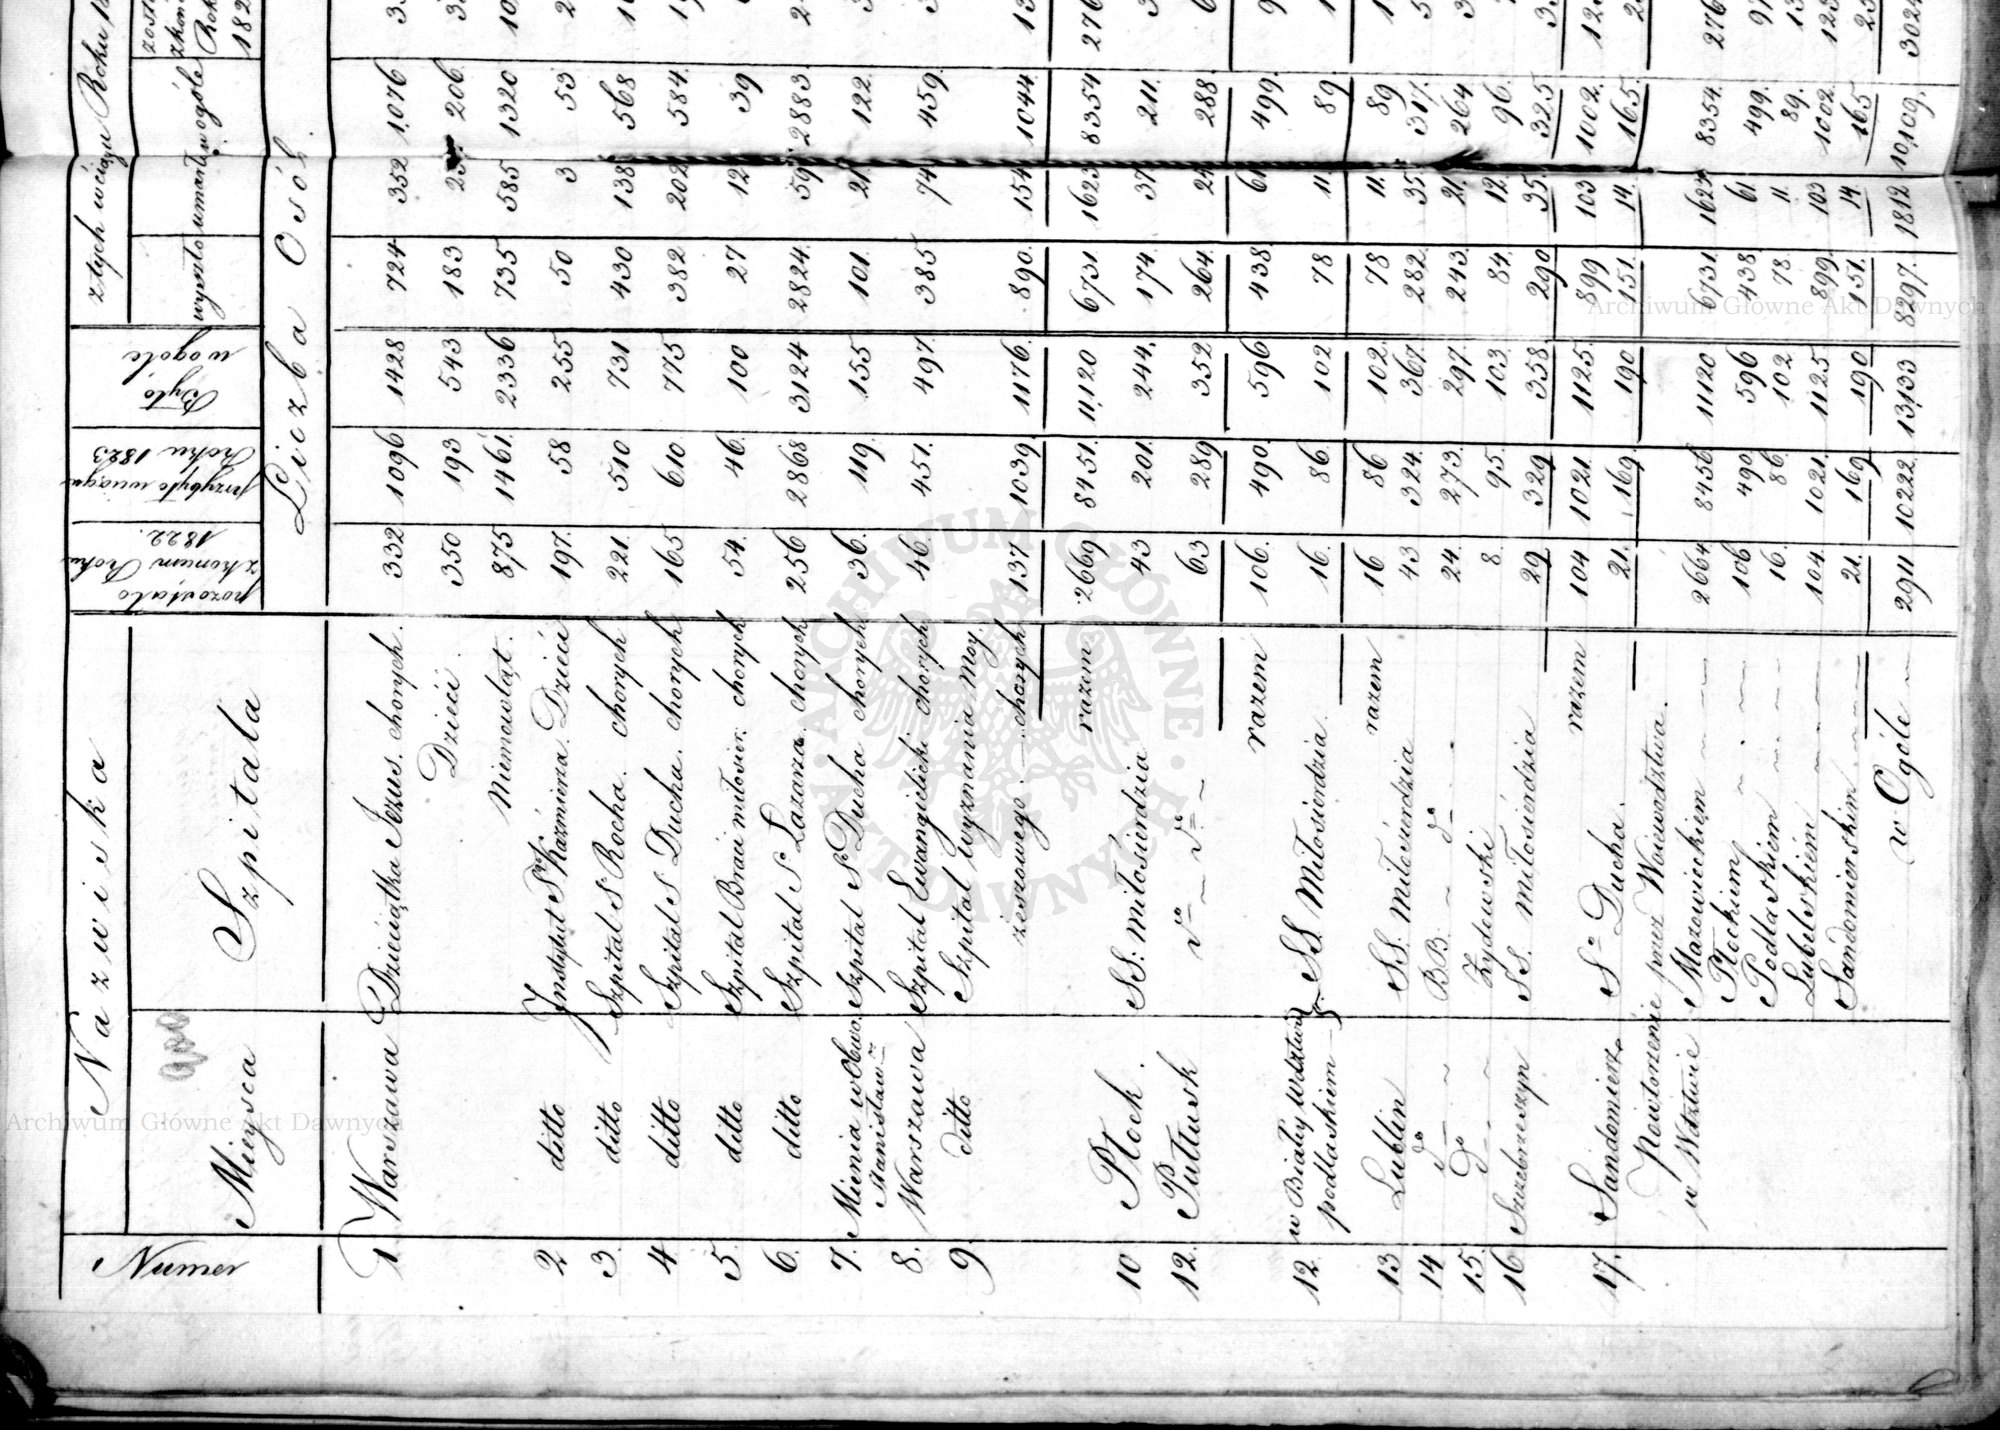 Archiwum Główne Akt Dawnych
Archiwum Główne Akt Dawnych
ARCHIWUM GŁÓWNE AKT DAWNYCH
Numer
Nazwiska
Mieysca
Szpitala
pozostało z końcem Roku 1822.
przybyło w ciągu Roku 1823
Było w ogóle
z tych w ciągu Roku
wyszło
umarło
w ogóle
Liczba Osób
1. Warszawa Dzieciątka Jezus. chorych. 332 1096 1428 724 352 1076
Dzieci. 350 193 543 183 206
Niemowląt. 875 1461. 2336 735 585 1320
2 ditto Instytut Sgo Kazmierza Dzieci 197. 58 255 50 3 53
3. ditto Szpital S Rocha. chorych 221. 510 731 430 138 568
4. ditto Szpital S Ducha. chorych 165 610. 775 382 202 584.
5. ditto Szpital Braci miłosier: chorych 54. 46. 100 27 12 39
6. ditto Szpital S Lazarza. chorych 256 2868 3124 2824. 59 2883.
7. Mienia w Obwo. Stanisław. Szpital S Ducha chorych 36. 119. 155 101. 21. 122.
8. Warszawa Szpital Ewangielicki chorych 46. 451. 497. 385 74 459.
9. ditto Szpital Wyznania Moy-
żeszowego chorych 137 1039. 1176. 890. 154. 1044.
razem. 2669 8451. 11,120 6731. 1623. 8354
10 Płock. SS: Miłosierdzia 43 201. 244. 174. 37. 211.
12. Pułtusk do do 63 289 352 264. 24. 288.
razem 106. 490. 596 438 61. 499.
12. w Białey Wdztwie podlaskiem SS. Miłosierdzia. 16. 86. 102 78 11. 89.
razem 16 86 102. 78 11. 89
13 Lublin SS. Miłosierdzia 43 324. 367. 282. 35. 317.
14 do BB. do 24. 273. 297. 243. 21. 264
15. do Zydowski 8 95. 103. 84. 12. 96.
16. Szczebrzeszyn SS. Miłosierdzia 29. 329 358 290 35. 325
razem 104 1021. 1125. 899 103 1002.
17. Sandomierz S. Ducha. 21. 169. 190 151. 14. 165.
Powtorzenie przez Woiewodztwa.
w Wdztwie Mazowieckiem 2664 8456 11120 6731. 1623 8354.
Płockiem 106 490. 596 438. 61. 499.
Podlaskiem 16. 86. 102. 78. 11. 89.
Lubelskiem 104. 1021. 1125 899. 103 1002.
Sandomierskiem 21. 169 190 151. 14. 165
w Ogóle 2911 10222. 13,133 8297. 1812. 10,109.